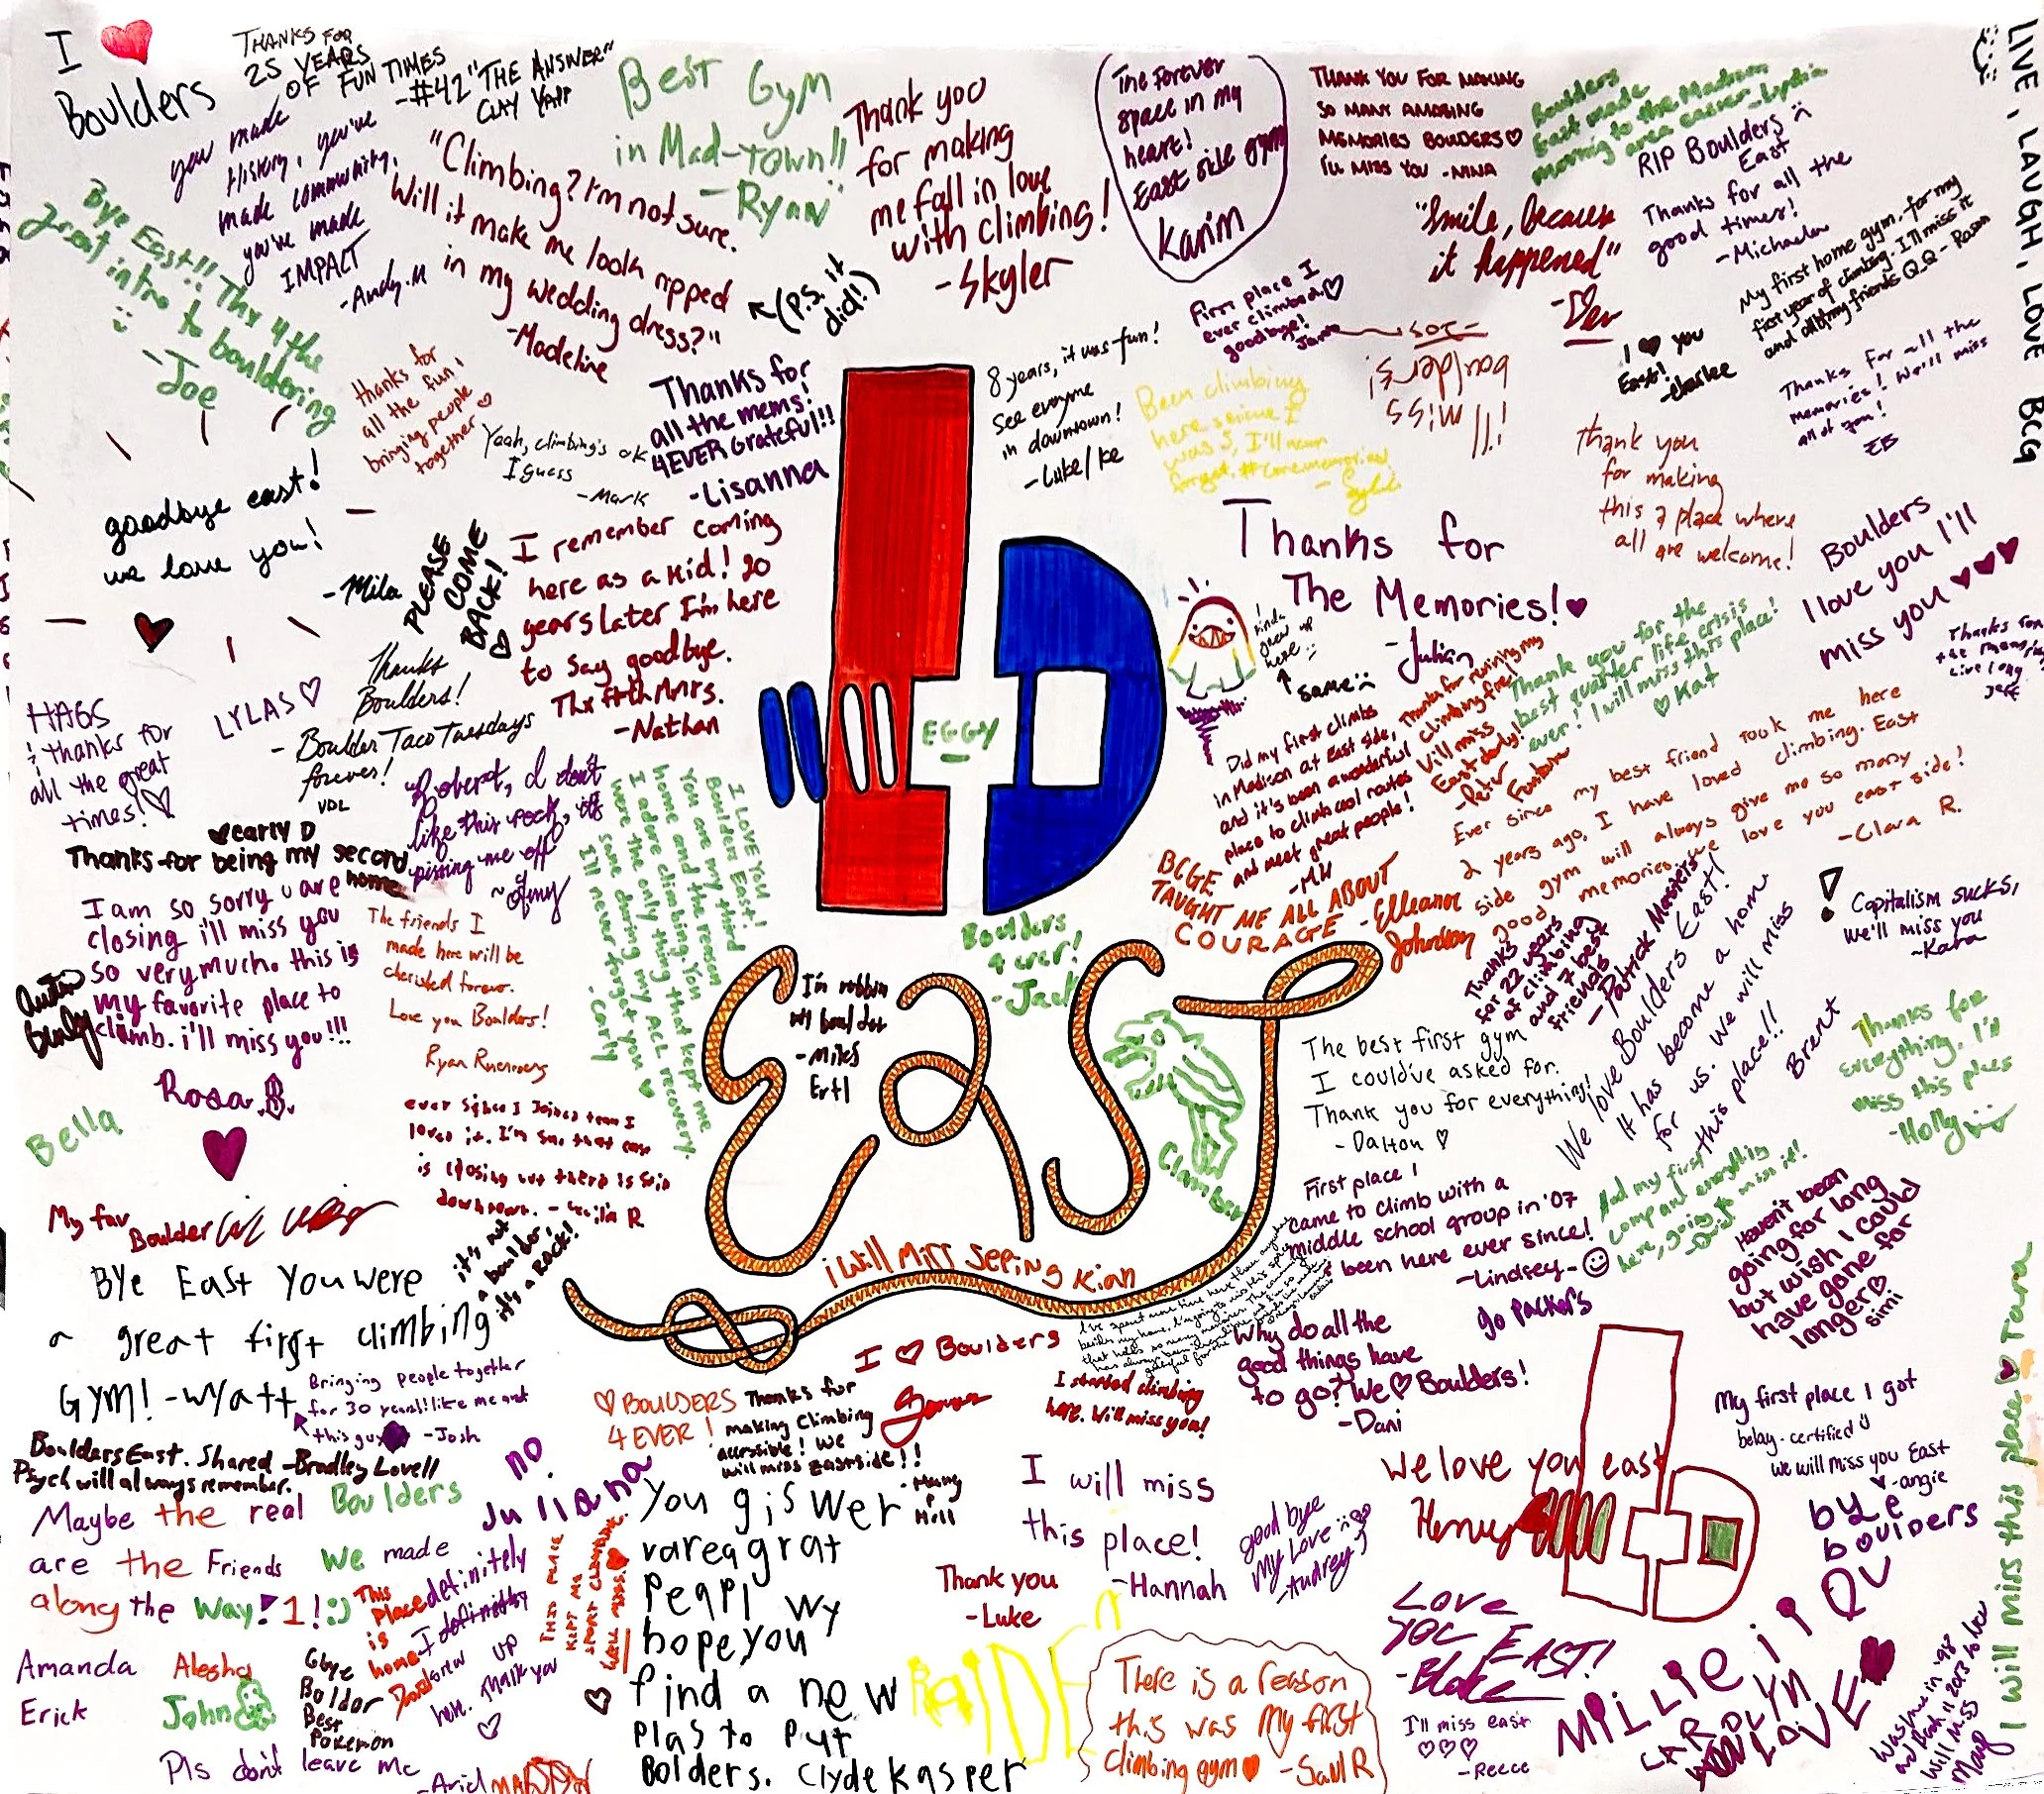 I ❤
Boulders
THANKS FOR
25 YEARS
OF FUN TIMES
-#42 "THE ANSWER"
CLAY
you made
History, you've
made community,
you've made
IMPACT
-Andy.M
"Climbing? I'm not sure.
Will it make me look ripped
in my wedding dress?"
-Madeline
(P.S. it
did!)
Best Gym
in Mad-town!!
-Ryan
Thank you
for making
me fall in love
with climbing!
-Skyler
The Forever
space in my
heart!
East side gym
Karim
THANK YOU FOR MAKING
SO MANY AMAZING
MEMORIES BOULDERS♡
I'LL MISS YOU -NINA
Boulders
East made
moving to the Madison
area easier -Lydia
RIP Boulders
East
Thanks for all the
good times!
-Michaela
LIVE, LAUGH, LOVE BCG
"Smile, because
it happened"
-Dev
My first home gym, for my
first year of climbing. I'll miss it
and all of my friends Q_Q -
Bye East!! Thx 4 the
great intro to bouldering
-Joe
thanks for
all the fun!
bringing people
together ♡
Yeah, climbing's ok
I guess
-Mark
Thanks for
all the mems!
4EVER Grateful!!
-Lisanna
8 years, it was fun!
see everyone
in downtown!
-Luke/Ke
First place I
ever climbed♡
goodbye!
I'll miss
boulders!
-Joz
Been climbing
here since I
was 5, I'll never
forget. #corememories
I ❤ you
East!
-Charlee
Thanks for all the
memories! We'll miss
all of you!
EB
thank you
for making
this a place where
all are welcome!
goodbye east!
we love you!
-Mila
PLEASE
COME
BACK!
♡
I remember coming
here as a kid! 20
years later I'm here
to say goodbye.
Thx 4 th Mmrs.
-Nathan
Thanks for
The Memories!♥
-Julian
I
kinda
grew up
here
same
Boulders
I love you I'll
miss you ♥♥♥
Thanks for
the memories
Live long
Jeff
HAGS
! thanks for
all the great
times!♡
LYLAS♡
Thanks
Boulders!
- Boulder Taco Tuesdays
forever!
VDL
EGGY
Thank you for the
best quarter life crisis
ever! I will miss this place!
♡ Kat
Thanks for ruining my
climbing fire!
Will miss
East dearly!
-Peter
Did my first climbs
in Madison at East side,
and it's been a wonderful
place to climb cool routes
and meet great people!
-MW
Robert, I don't
like this rock, it's
pissing me off
~Amy
♥carly D
Thanks for being my second
home
I am so sorry u are
closing i'll miss you
so very much. this is
my favorite place to
climb. i'll miss you!!!
Rosa.B.
The friends I
made here will be
cherished forever.
Love you Boulders!
I LOVE YOU
Boulders East!
You are my third
home and the reason
I adore climbing. You
were the only thing that kept me
sane during my ACL recovery.
I'll never forget you ♥
-Carly
Ever since my best friend took me here
2 years ago, I have loved climbing. East
side gym will always give me so many
good memories, we love you east side!
-Clara R.
BCGE
TAUGHT ME ALL ABOUT
COURAGE -Elleanor
Johnson
Boulders
4 ever!
-Jack
Thanks
for 22 years
of climbing
and 7 best
friends
-Patrick Masters
! Capitalism sucks,
we'll miss you
-Kara
EAST
I'm robbin
w/ boulder
-Miles
Ertl
Climber
The best first gym
I could've asked for.
Thank you for everything!
-Dalton ♡
We love Boulders East!
It has become a home
for us. We will miss
this place!!
Brent
Thanks for
everything. I'll
miss this place
-Holly
Bella
ever since I joined team I
loved it. I'm sad that east
is closing but there is still
downtown. - R
My fav
Boulder
it's not
a boulder,
it's a ROCK!
First place I
came to climb with a
middle school group in '07
been here ever since!
-Lindsey-☺
Had my first
comp and everything
here, going to miss it!
Haven't been
going for long
but wish I could
have gone for
longer♡
Simi
go Packers
i Will Miss seeing Kian
Bye East You were
a great first climbing
Gym! -Wyatt
Bringing people together
for 30 years! like me and
this guy -Josh
Boulders East. Shared
Psych will always remember.
-Bradley Lovell
I ♡ Boulders
♡ BOULDERS
4 EVER!
Thanks for
making Climbing
accessible! We
will miss Eastside!!
I started climbing
here. Will miss you!
Why do all the
good things have
to go? We♡Boulders!
-Dani
My first place I got
belay-certified
We will miss you East
-angie
We love you east
Henry
bye
boulders
I will miss this place♥Tara
no
Juliana
Maybe the real Boulders
are the Friends We made
along the Way!1!:)
Amanda
Erick
Alesha
John
Pls don't leave me
-Ariel
Gbye
Boldor
Best
Pokemon
This
place
is
home
David
I definitely
grew up
here. Thank you
♡
THIS PLACE
KEPT ME
SPORT CLIMBING.
WILL MISS.♥
You gis wer
varea grat
Peapl wy
hope you
find a new
plas to put
Bolders. Clyde Kasper
I will miss
this place!
-Hannah
Thank you
-Luke
good bye
my love
-Audrey
RAIDEn
There is a reason
this was my first
climbing gym♥ -Saul R
LOVE
YOU EAST!
-Blake
I'll miss east
♡♡♡
-Reece
MiLLiE ii QU
CAROLYN
LOVE♥
Was here in '98
and Back in 2023 to now
will miss